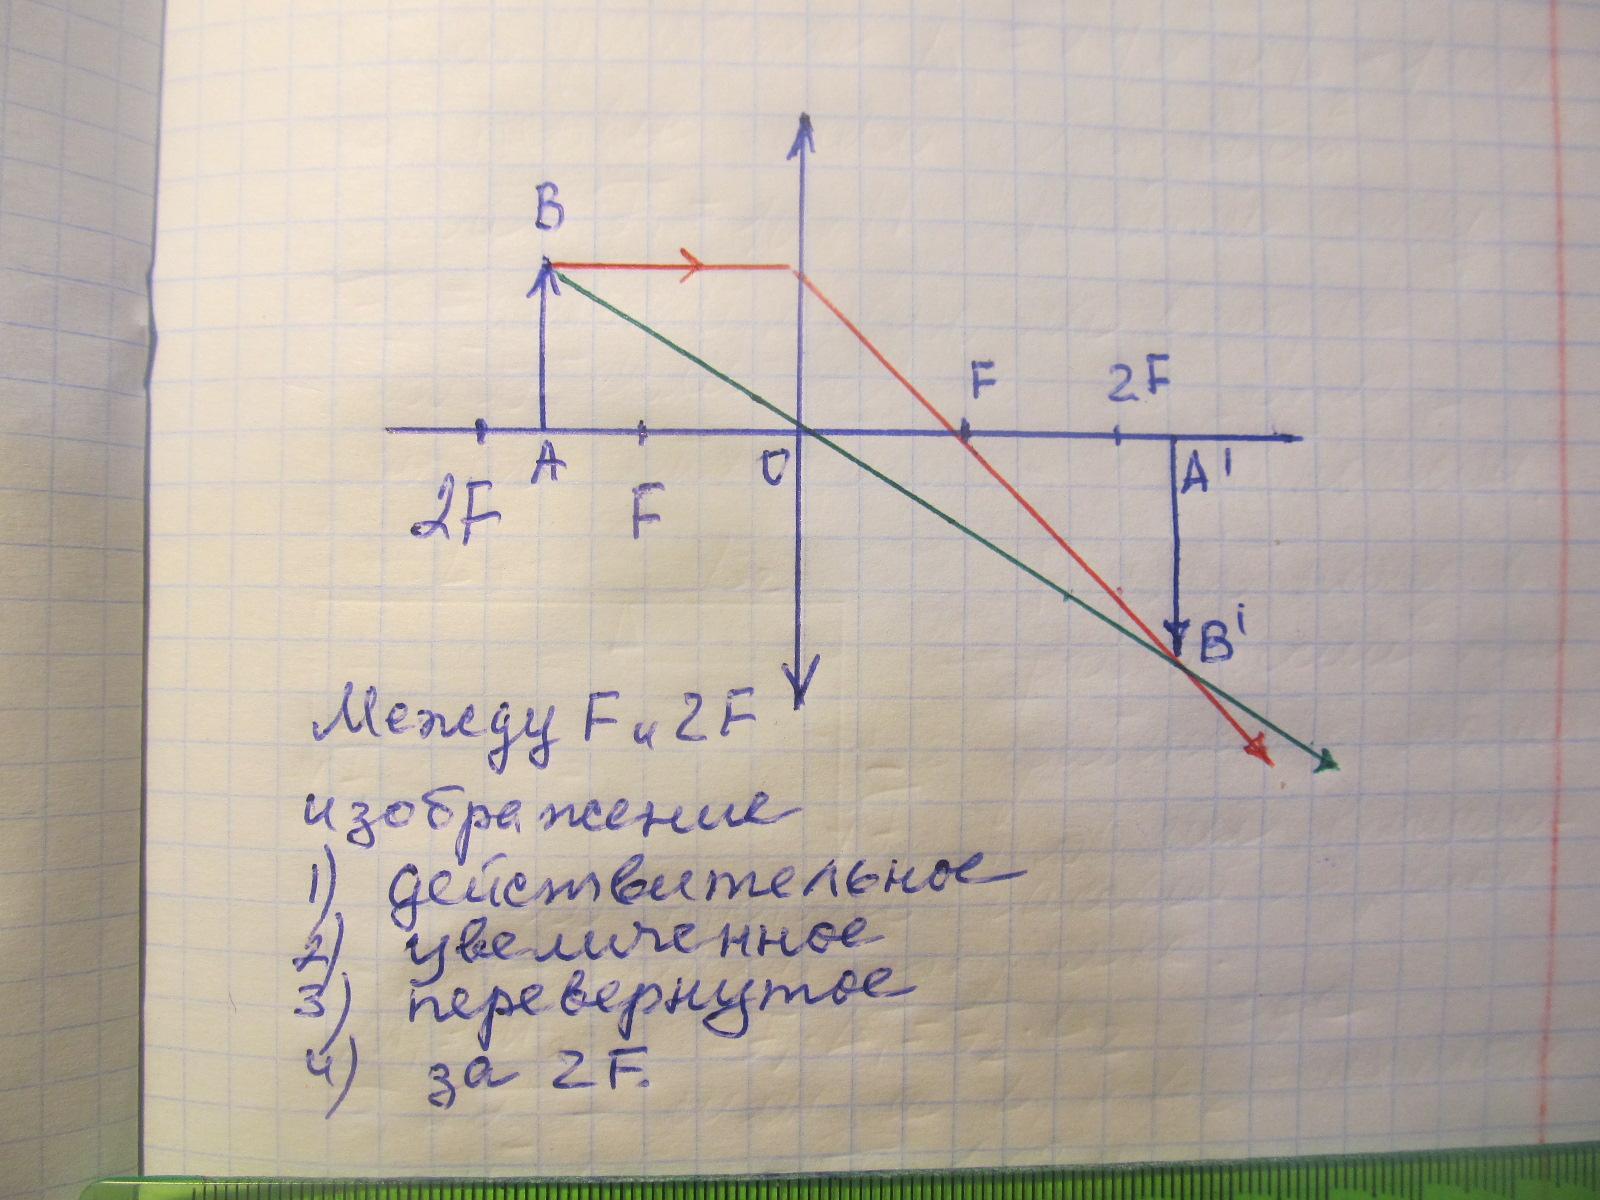 B
F 2F
A O A'
2F F
B'
Между F и 2F
изображение
1) действительное
2) увеличенное
3) перевернутое
4) за 2F.